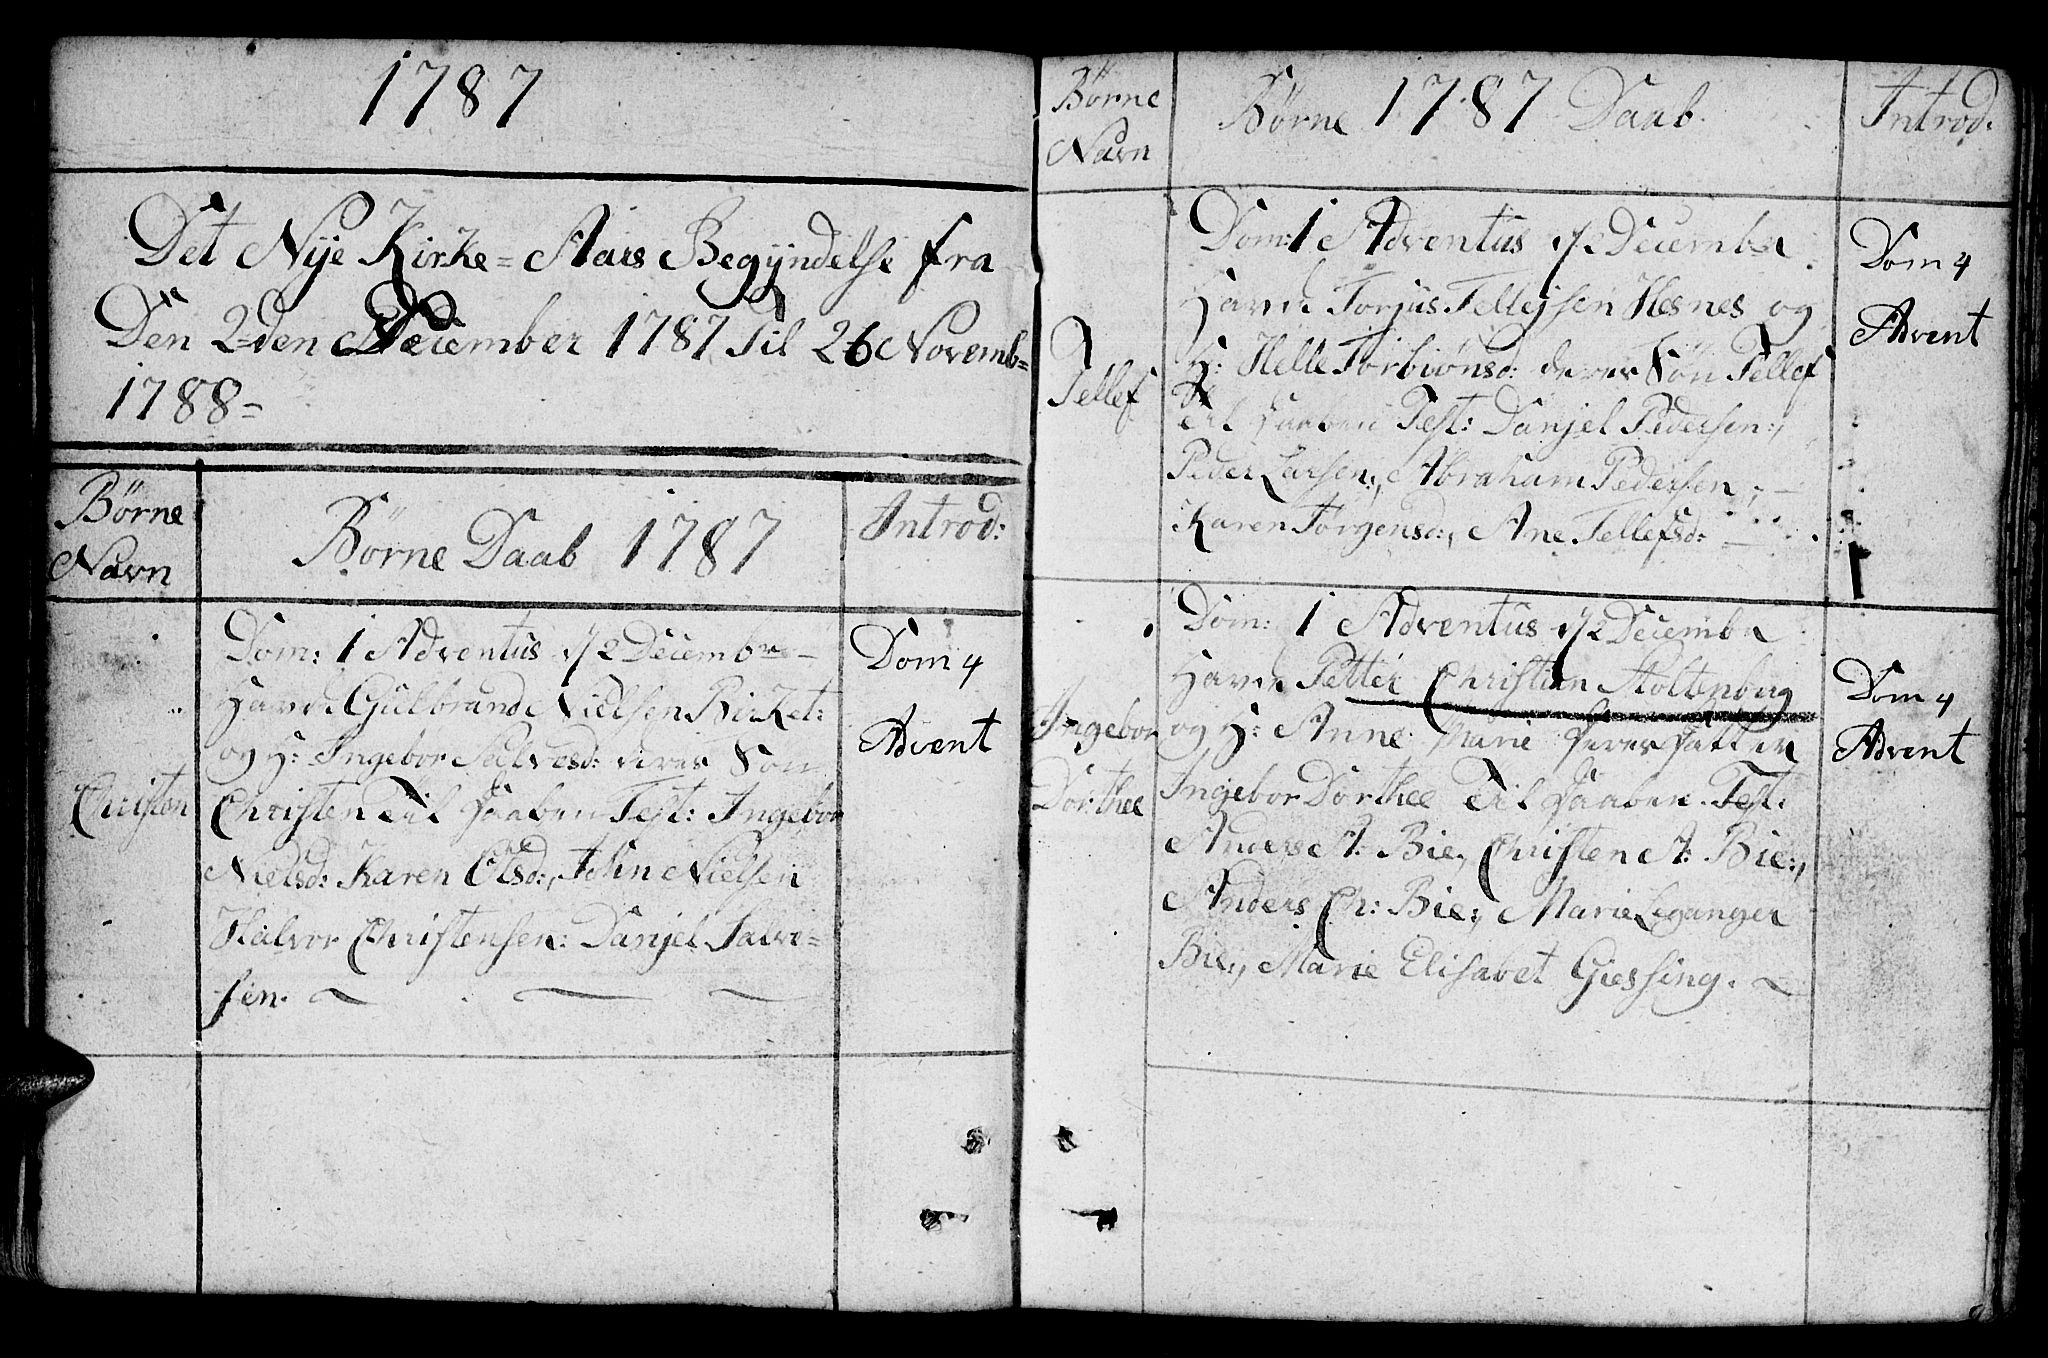 1787
Det Nÿe Kirke=Aars Begÿndelse fra
Den 2den December 1787 Til 26 Novemb=
1788=
Börne
Navn
Börne Daab 1787
Introd:
Christen
Dom: 1 Adventus d/2 Decembr
Havde Gulbrand Nielsen Birket:
og H: Ingebor Salvesd: deres Sön
Christen Til Daaben Test: Ingebor
Nielsd: Karen Olsd:, John Nielsen
Halvor Christensen: Danjel Salve=
sen.
Dom 4
Advent
Börne
Navn
Börne 1787 Daab
Introd:
Tellef
Dom: 1 Adventus d/2 Decembr
Havde Torjus Tellefsen Hesnes og
H: Helle Torbiönsd: deres Sön Tellef
Til Daaben Test: Danjel Pedersen:,
Peder Larsen:, Abraham Pedersen,
Karen Jörgensd:, Ane Tellefsd:
Dom 4
Advent
Ingebor
Dorthee
Dom: 1 Adventus d/2 Decembr
Havde Petter Christian Stoltenberg
og H: Anne Marie deres Datter
Ingebor Dorthee Til Daaben. Test:
Anders A: Bie, Christen A: Bie:,
Anders Ch: Bie:, Marie Leganger
Bie:, Marie Elisabet Giessing.
Dom 4
Advent